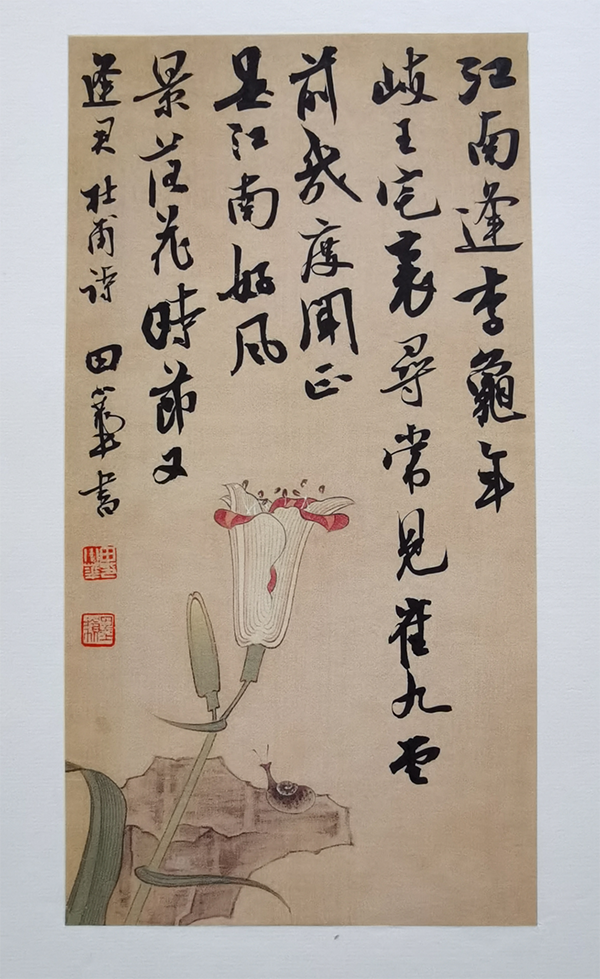 江南逢李龜年
岐王宅裏尋常見崔九堂
前幾度聞正
是江南好風
景落花時節又
逢君 杜甫詩 田小華書